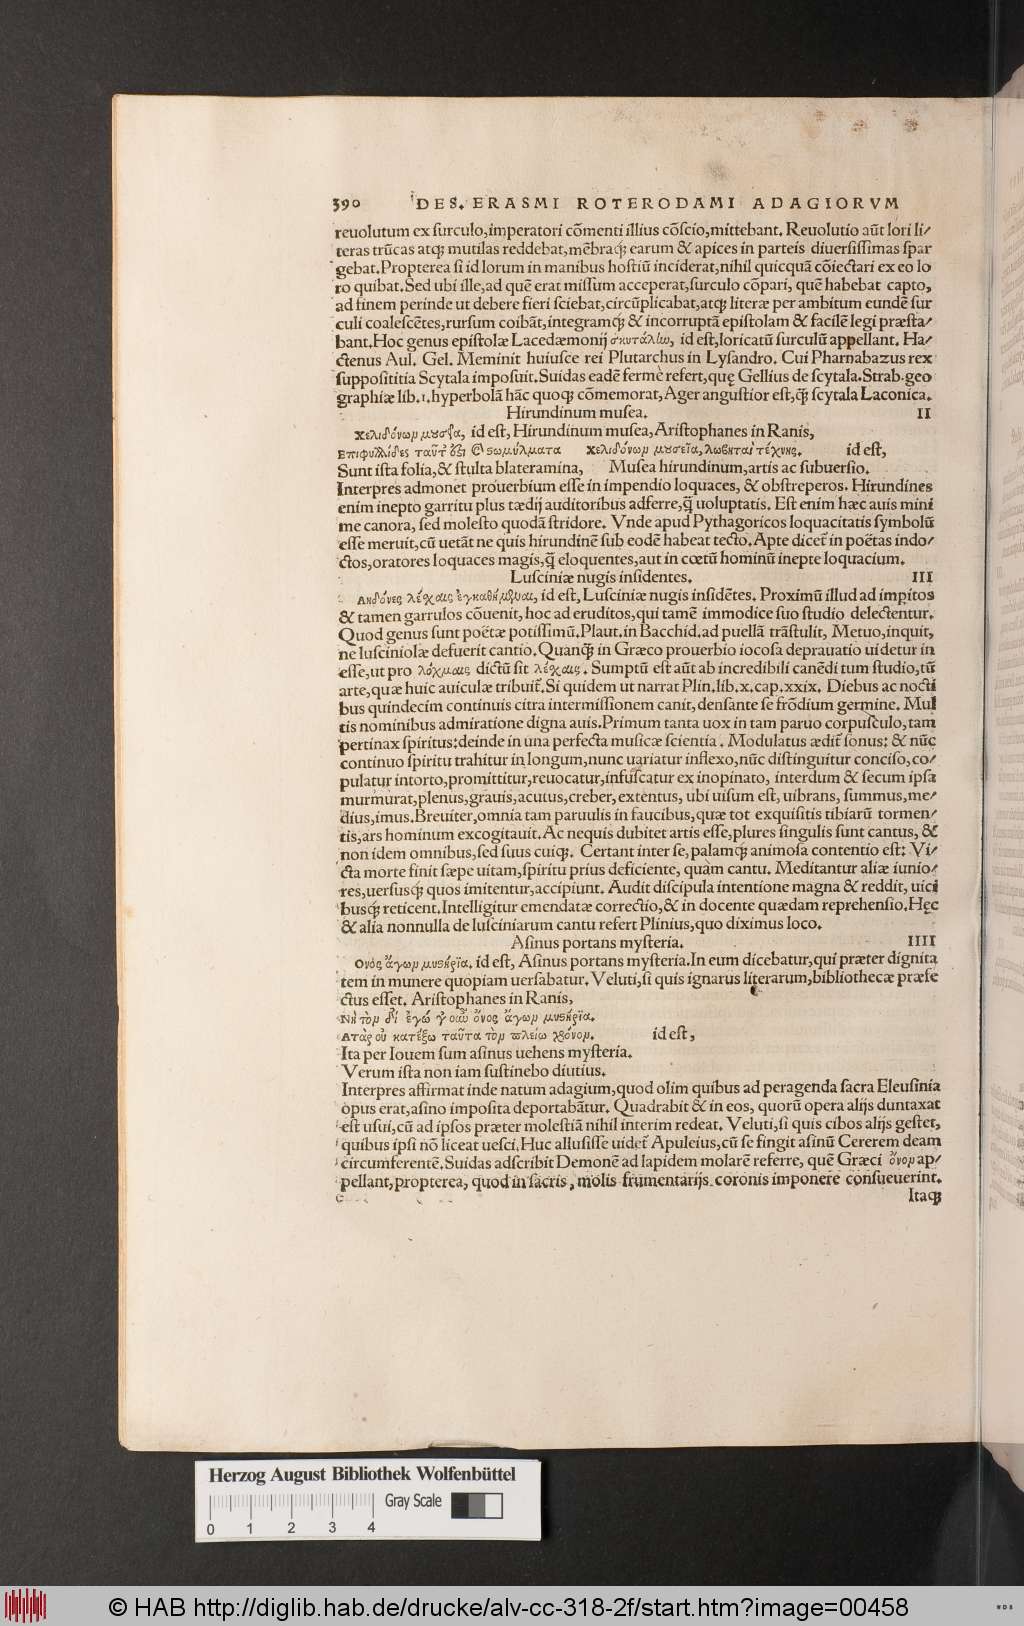 390 DES. ERASMI ROTERODAMI ADAGIORVM
reuolutum ex surculo,imperatori cōmenti illius cōscio,mittebant. Reuolutio aūt lori li/
teras trūcas atq; mutilas reddebat,mēbraq; earum & apices in parteis diuersissimas spar
gebat.Propterea si id lorum in manibus hostiū inciderat,nihil quicquā cōiectari ex eo lo
ro quibat.Sed ubi ille,ad quē erat missum acceperat,surculo cōpari, quē habebat capto,
ad finem perinde ut debere fieri sciebat,circūplicabat,atq; literæ per ambitum eundē sur
culi coalescētes,rursum coibāt,integramq; & incorruptā epistolam & facilē legi præsta/
bant.Hoc genus epistolæ Lacedæmonij σκυτάλίω, id est,loricatū surculū appellant. Ha/
ctenus Aul. Gel. Meminit huiusce rei Plutarchus in Lysandro. Cui Pharnabazus rex
supposititia Scytala imposuit.Suidas eadē fermè refert,quę Gellius de scytala.Strab.geo
graphiæ lib.1.hyperbolā hāc quoq; cōmemorat,Ager angustior est,q̄ scytala Laconica.
Hirundinum musea. II
Χελιδόνωμ μουσεῖα, id est, Hirundinum musea,Aristophanes in Ranis,
Επιφυλλίδες ταῦτ᾽ ὀξὶ & σωμύλματα Χελιδόνωμ μουσεῖα,λωβηταὶ τέχνης. id est,
Sunt ista folia,& stulta blateramina, Musea hirundinum,artis ac subuersio.
Interpres admonet prouerbium esse in impendio loquaces, & obstreperos. Hirundines
enim inepto garritu plus tædij auditoribus adferre,q̄ uoluptatis. Est enim hæc auis mini
me canora, sed molesto quodā stridore. Vnde apud Pythagoricos loquacitatis symbolū
esse meruit,cū uetāt ne quis hirundinē sub eodē habeat tecto.Apte dicet̄ in poëtas indo/
ctos,oratores loquaces magis,q̄ eloquentes,aut in cœtū hominū inepte loquacium.
Lusciniæ nugis insidentes. III
Αηδόνες λέχαις ἐγκαθήμεναι, id est, Lusciniæ nugis insidētes. Proximū illud ad impitos
& tamen garrulos cōuenit, hoc ad eruditos,qui tamē immodice suo studio delectentur.
Quod genus sunt poëtæ potissimū.Plaut.in Bacchid.ad puellā trāstulit, Metuo,inquit,
ne lusciniolæ defuerit cantio.Quanq; in Græco prouerbio iocosa deprauatio uidetur in
esse,ut pro λόχμαις dictū sit λέχαις. Sumptū est aūt ab incredibili canēdi tum studio,tū
arte,quæ huic auiculæ tribuit̄.Si quidem ut narrat Plin.lib.x.cap.xxix. Diebus ac nocti
bus quindecim continuis citra intermissionem canit, densante se frōdium germine. Mul
tis nominibus admiratione digna auis.Primum tanta uox in tam paruo corpusculo,tam
pertinax spiritus:deinde in una perfecta musicæ scientia. Modulatus ædit̄ sonus: & nūc
continuo spiritu trahitur in longum,nunc uariatur inflexo,nūc distinguitur conciso,co/
pulatur intorto,promittitur,reuocatur,infuscatur ex inopinato, interdum & secum ipsa
murmurat,plenus,grauis,acutus,creber,extentus, ubi uisum est, uibrans, summus,me/
dius,imus.Breuiter,omnia tam paruulis in faucibus,quæ tot exquisitis tibiarū tormen/
tis,ars hominum excogitauit.Ac nequis dubitet artis esse,plures singulis sunt cantus, &
non idem omnibus,sed suus cuiq;. Certant inter se,palamq; animosa contentio est: Vi/
cta morte finit sæpe uitam,spiritu prius deficiente, quàm cantu. Meditantur aliæ iunio/
res,uersusq; quos imitentur,accipiunt. Audit discipula intentione magna & reddit, uici
busq; reticent.Intelligitur emendatæ correctio,& in docente quædam reprehensio.Hęc
& alia nonnulla de lusciniarum cantu refert Plinius,quo diximus loco.
Asinus portans mysteria. IIII
Ονὸς ἄγωμ μυστήρια. id est, Asinus portans mysteria.In eum dicebatur,qui præter dignita
tem in munere quopiam uersabatur. Veluti,si quis ignarus literarum,bibliothecæ præfe
ctus esset. Aristophanes in Ranis,
Νὴ τὸμ δί᾽ ἐγώ γ᾽ οὖν ὄνος ἄγωμ μυστήρια.
Ατὰρ οὐ κατέξω ταῦτα τὸμ πλείω χρόνομ. id est,
Ita per Iouem sum asinus uehens mysteria.
Verum ista non iam sustinebo diutius.
Interpres affirmat inde natum adagium,quod olim quibus ad peragenda sacra Eleusinia
opus erat,asino imposita deportabātur. Quadrabit & in eos, quorū opera alijs duntaxat
est usui,cū ad ipsos præter molestiā nihil interim redeat. Veluti,si quis cibos alijs gestet,
quibus ipsi nō liceat uesci.Huc allusisse uidet̄ Apuleius,cū se fingit asinū Cererem deam
circumferentē.Suidas adscribit Demonē ad lapidem molarē referre, quē Græci ὄνομ ap/
pellant,propterea, quod in sacris, molis frumentarijs coronis imponere consueuerint.
Itaq;
Herzog August Bibliothek Wolfenbüttel
Gray Scale
0 1 2 3 4
© HAB http://diglib.hab.de/drucke/alv-cc-318-2f/start.htm?image=00458